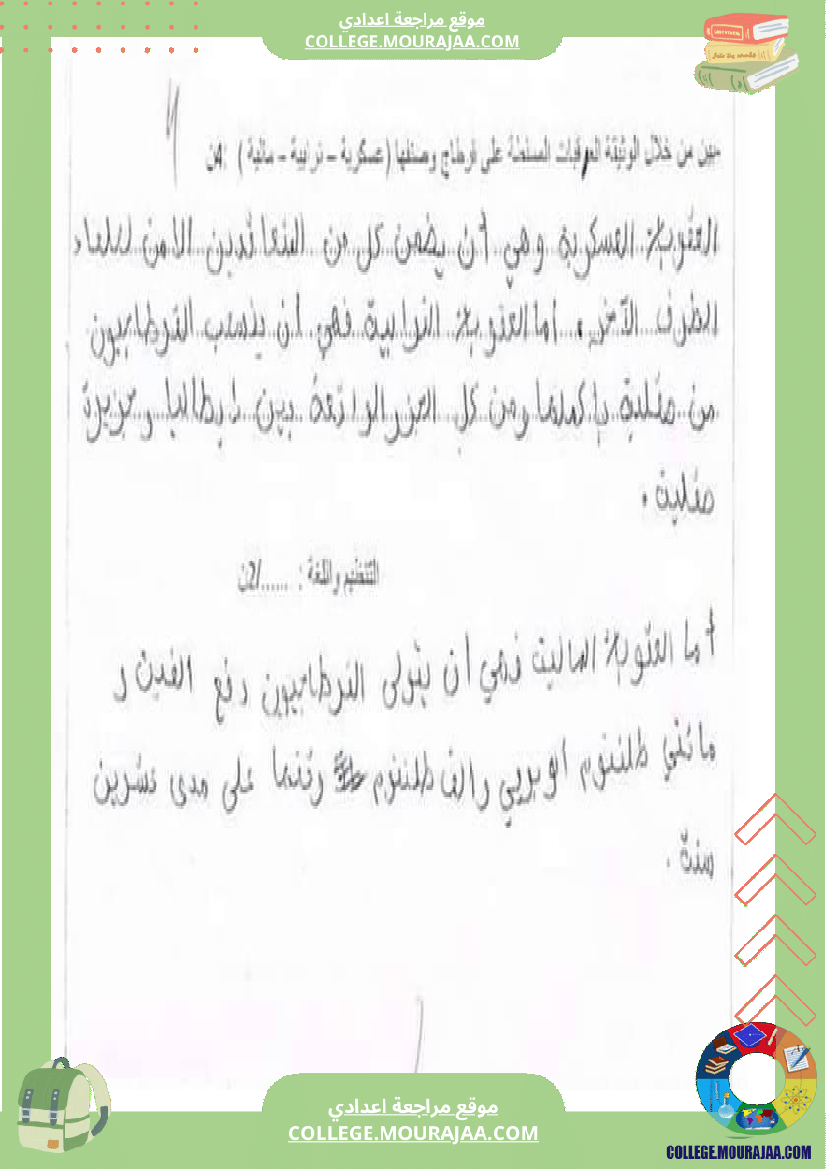 موقع مراجعة اعدادي
COLLEGE.MOURAJAA.COM
من خلال الوثيقة العقوبات المسلطة على قرطاج وصنفها (عسكرية – ترابية – مالية) :
العقوبة العسكرية وهي أن يضمن كل من المتعاقدين الأمن لحلفاء
الطرف الآخر. أما العقوبة الترابية فهي أن ينسحب القرطاجيون
من صقلية بأكملها ومن كل الجزر الواقعة بين إيطاليا وجزيرة
صقلية.
التنظيم واللغة : ......./2ن
أما العقوبة المالية فهي أن يتولى القرطاجيون دفع ألفين و
مائتي طلنتوم أوبويي وألف طلنتوم وقتها على مدى عشرين
سنة.
موقع مراجعة اعدادي
COLLEGE.MOURAJAA.COM
COLLEGE.MOURAJAA.COM